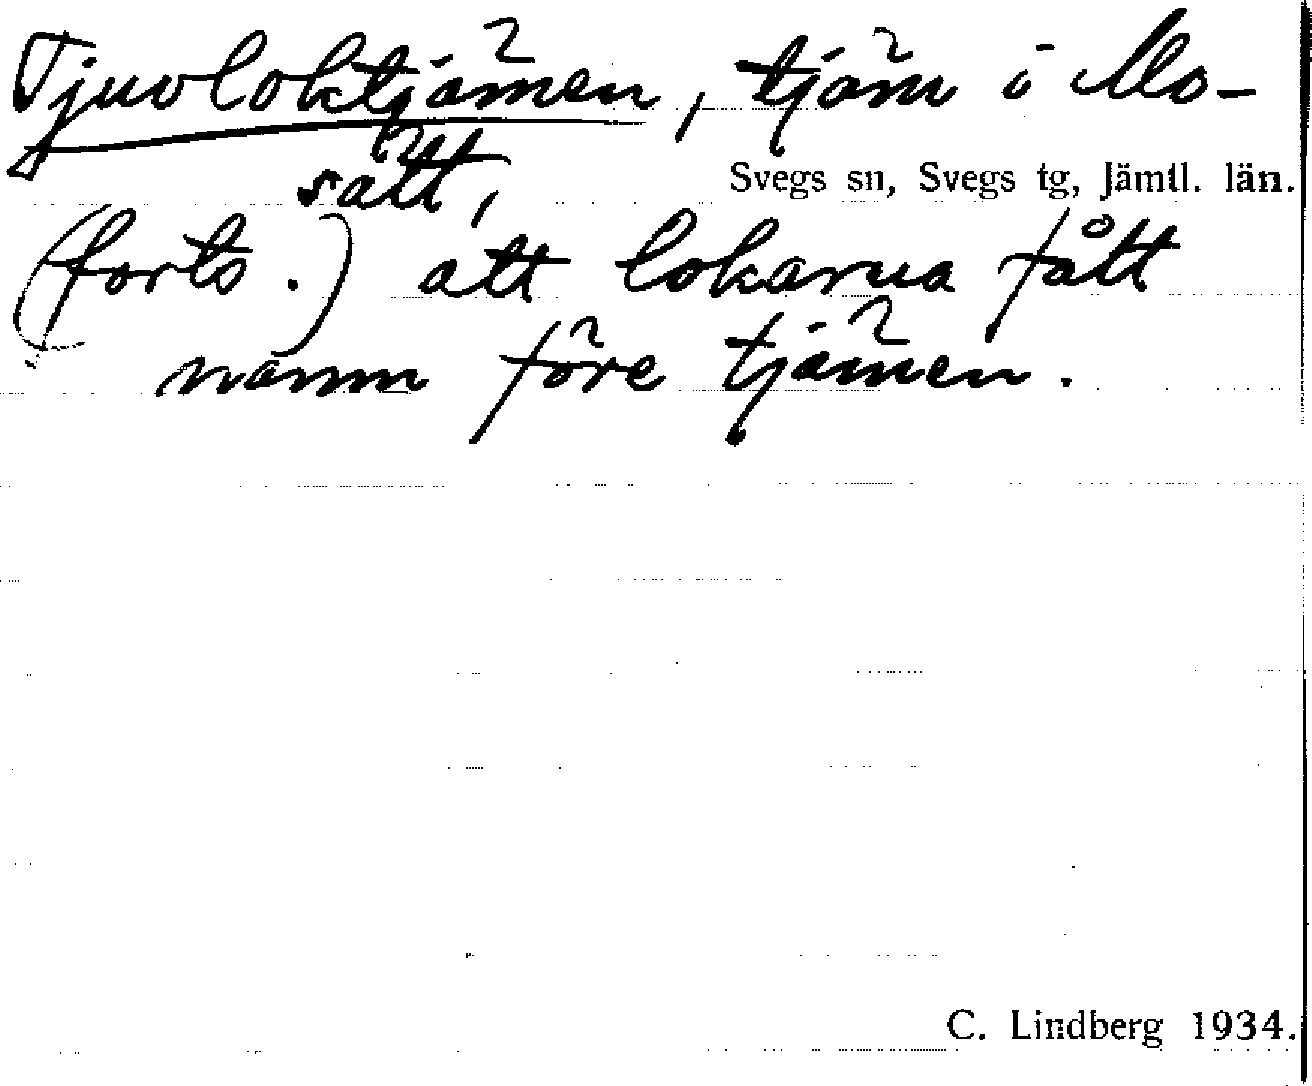 Tjuvloktjämen, tjäm i Mo-
sätt,
Svegs sn, Svegs tg, Jämtl. län.
(forts.) att lokarna fått
namn före tjämen.
C. Lindberg 1934.